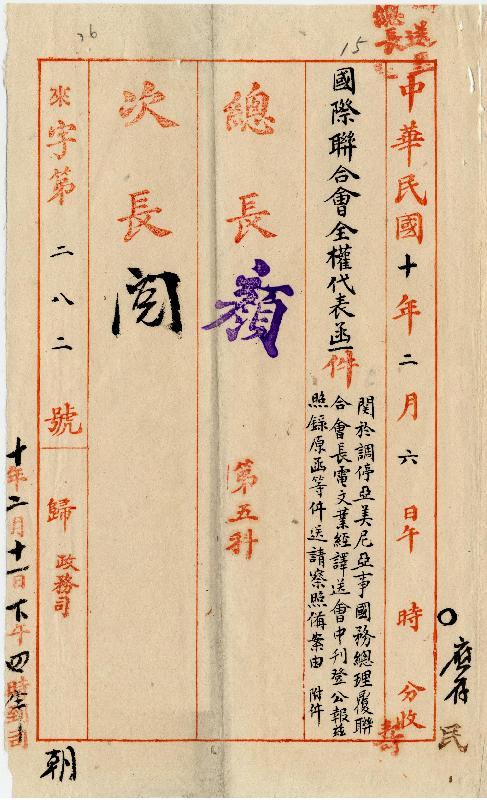 總長
送至
中華民國十年二月六日午 時 分收
國際聯合會全權代表函一件
關於調停亞美尼亞事國務總理覆聯
合會長電文業經譯送會中刊登公報茲
照錄原函等件送請察照備案由 附件
總長
第五科
次長 閱
來字第二八二號
歸 政務司
十年二月十一日下午四
應存
民
朝
15